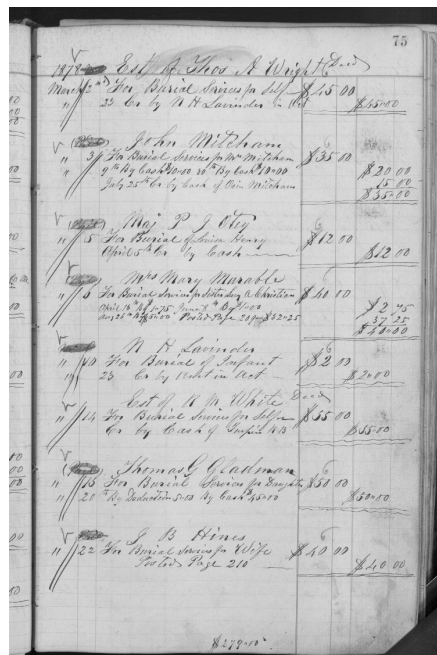 75
1878 Est of Thos A Wright Decd
March 2nd For Burial Services for Self $45 00
" 23 Cr by N H Lavinder in Act $45=00
John Mitcham
" 3 For Burial Services for Mr Mitcham $35 00
9th By Cash $10=00 20th By Cash $10=00 $20 00
July 25th Cr by Cash of Mitcham 15 00
$35=00
Maj P J Otey
" 5 For Burial of Henry $12 00
April 5th Cr by Cash $12 00
Mrs Mary Marable
" 6 For Burial Services for Christian $40 00
April $2 75
Posted Page 209 $32=25 37 25
$40=00
N H Lavinder
" 10 For Burial of Infant $2 00
" 23 Cr by Act $2=00
Est of R M White Decd
" 14 For Burial Services for Self $55 00
Cr by Cash of $55=00
Thomas G Gladman
" 15 For Burial Services for Daughter $50 00
" 20th By Deduction 5=00 By Cash 45=00 $50=00
J B Hines
" 22 For Burial Services for Wife $40 00
Posted Page 210 $40 00
$279=00